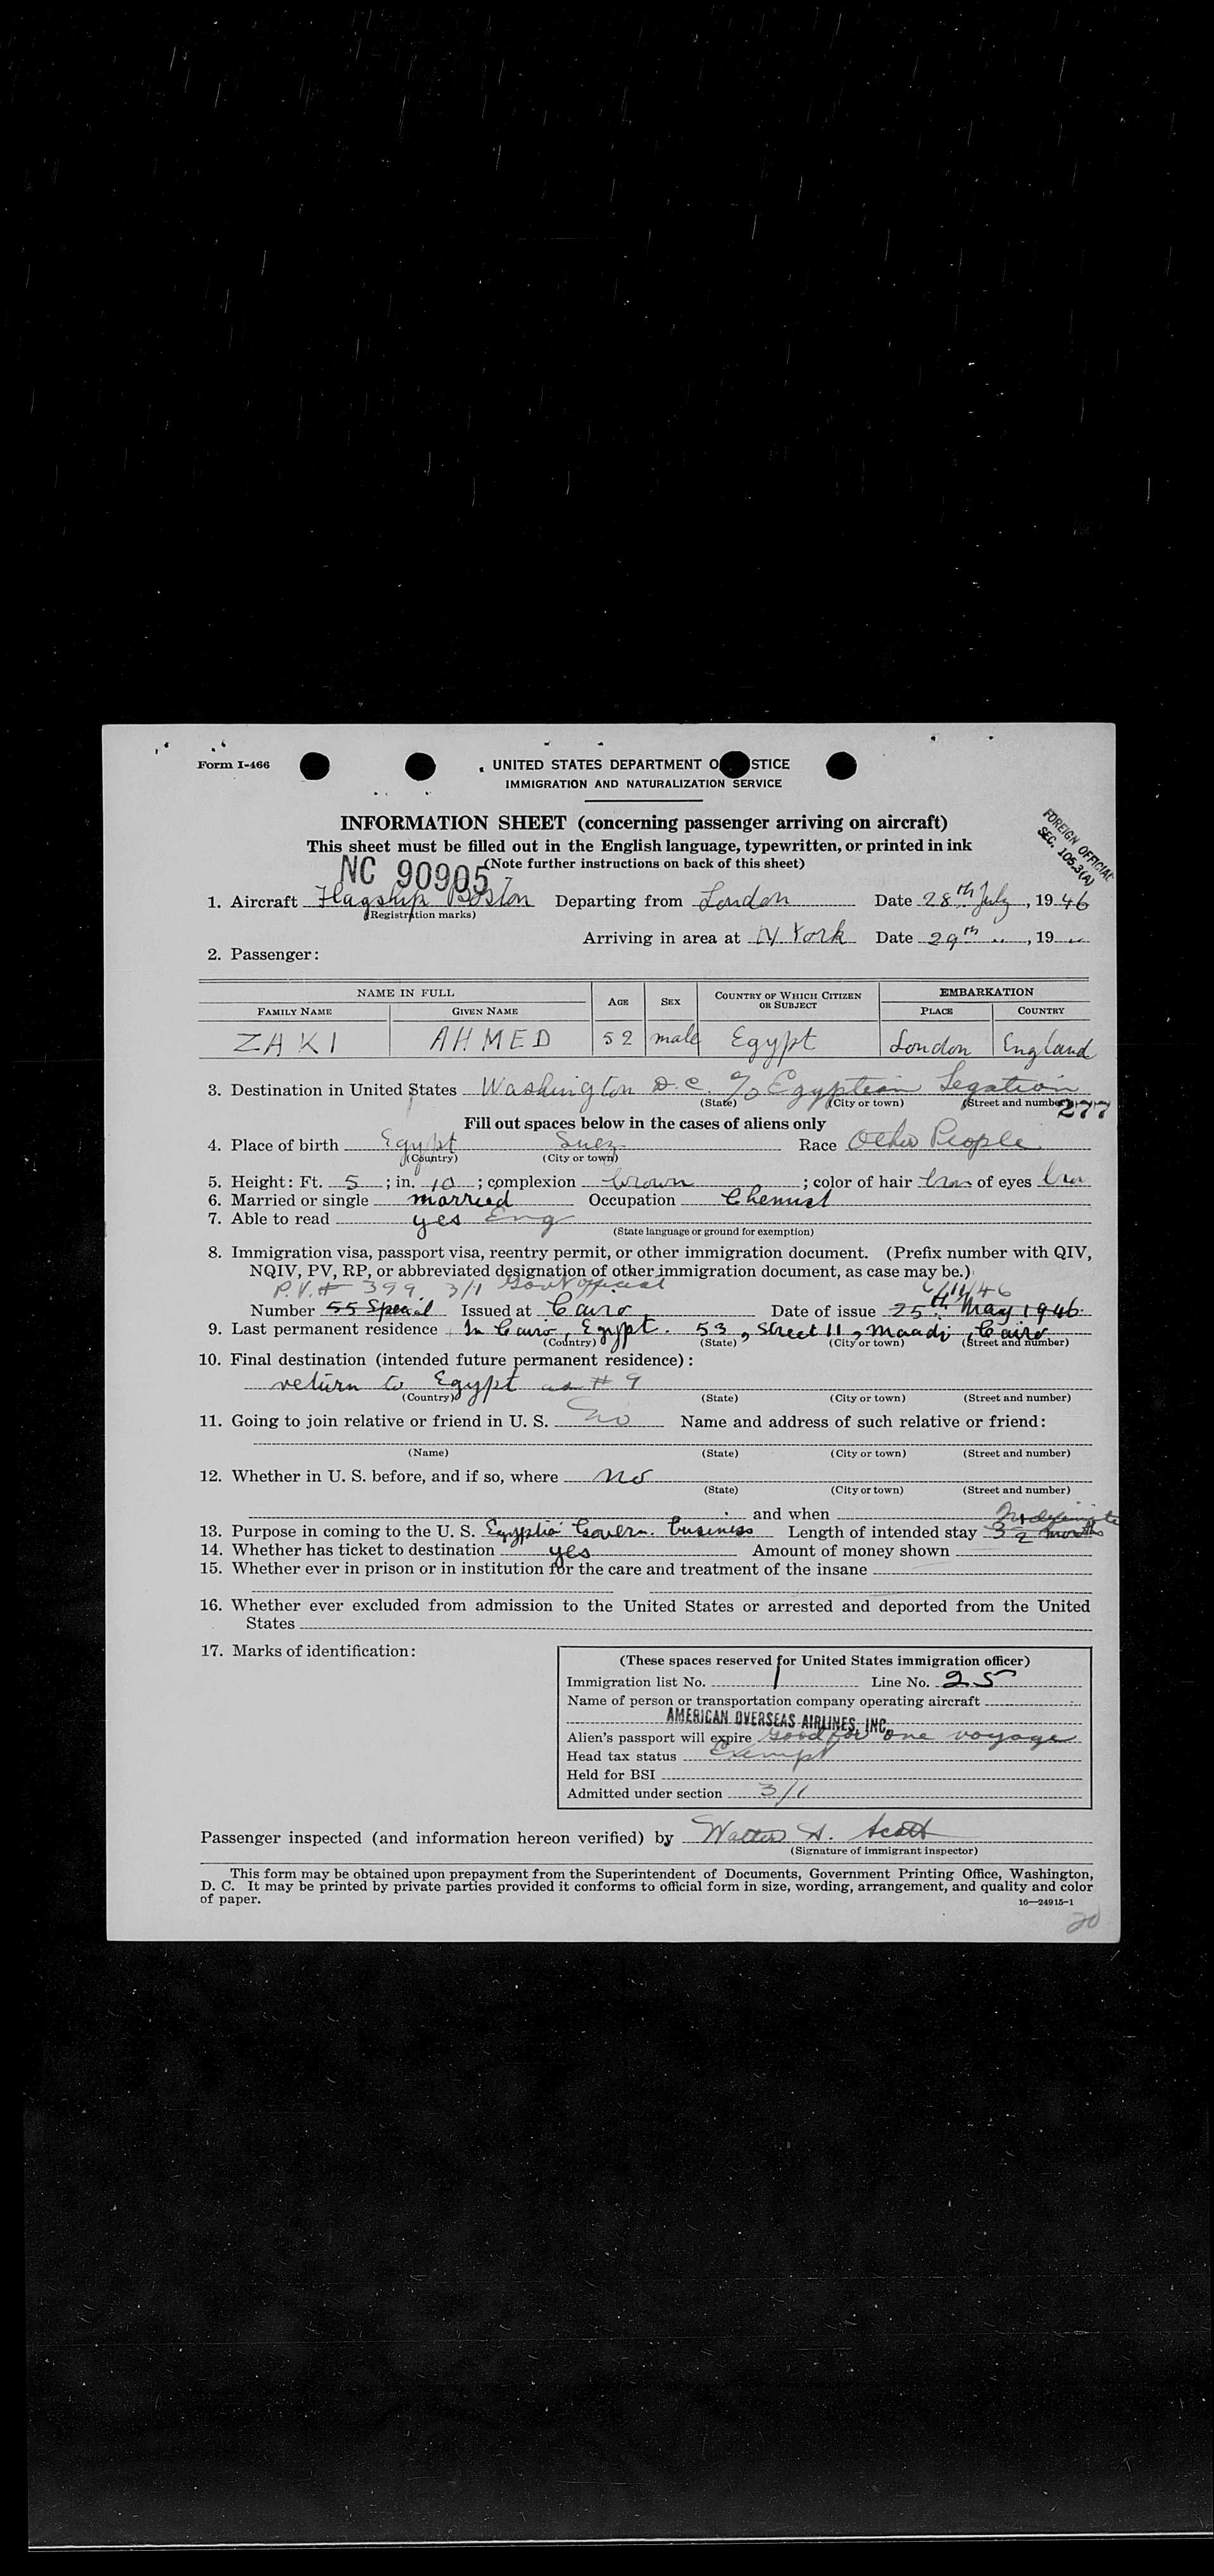 Form I-466
UNITED STATES DEPARTMENT O STICE
IMMIGRATION AND NATURALIZATION SERVICE
INFORMATION SHEET (concerning passenger arriving on aircraft)
This sheet must be filled out in the English language, typewritten, or printed in ink
(Note further instructions on back of this sheet)
FOREIGN OFFICIAL
SEC. 105.3(A)
NC 90905
1. Aircraft Flagship Boston Departing from London Date 28th July, 1946
(Registration marks)
Arriving in area at N York Date 29th " , 19 "
2. Passenger:
NAME IN FULL AGE SEX COUNTRY OF WHICH CITIZEN OR SUBJECT EMBARKATION
FAMILY NAME GIVEN NAME PLACE COUNTRY
ZAKI AHMED 52 male Egypt London England
3. Destination in United States Washington D.C. c/o Egyptian Legation
(State) (City or town) (Street and number)
277
Fill out spaces below in the cases of aliens only
4. Place of birth Egypt Suez Race Other People
(Country) (City or town)
5. Height: Ft. 5 ; in. 10 ; complexion brown ; color of hair bro of eyes bro
6. Married or single married Occupation Chemist
7. Able to read yes Eng
(State language or ground for exemption)
8. Immigration visa, passport visa, reentry permit, or other immigration document. (Prefix number with QIV,
NQIV, PV, RP, or abbreviated designation of other immigration document, as case may be.)
P.V. # 399 3/1 Govt official 6/11/46
Number 55 Special Issued at Cairo Date of issue 25th May 1946
9. Last permanent residence In Cairo, Egypt. 53, Street 11, Maadi, Cairo
(Country) (State) (City or town) (Street and number)
10. Final destination (intended future permanent residence):
return to Egypt as # 9
(Country) (State) (City or town) (Street and number)
11. Going to join relative or friend in U. S. no Name and address of such relative or friend:
(Name) (State) (City or town) (Street and number)
12. Whether in U. S. before, and if so, where no
(State) (City or town) (Street and number)
and when Indefinite
13. Purpose in coming to the U. S. Egyptian Govern. business Length of intended stay 3 1/2 months
14. Whether has ticket to destination yes Amount of money shown
15. Whether ever in prison or in institution for the care and treatment of the insane
16. Whether ever excluded from admission to the United States or arrested and deported from the United
States
17. Marks of identification:
(These spaces reserved for United States immigration officer)
Immigration list No. 1 Line No. 25
Name of person or transportation company operating aircraft
AMERICAN OVERSEAS AIRLINES, INC.
Alien's passport will expire Good for one voyage
Head tax status Exempt
Held for BSI
Admitted under section 3/1
Passenger inspected (and information hereon verified) by Walter A. Scott
(Signature of immigrant inspector)
This form may be obtained upon prepayment from the Superintendent of Documents, Government Printing Office, Washington,
D. C. It may be printed by private parties provided it conforms to official form in size, wording, arrangement, and quality and color
of paper.
16—24915-1
20